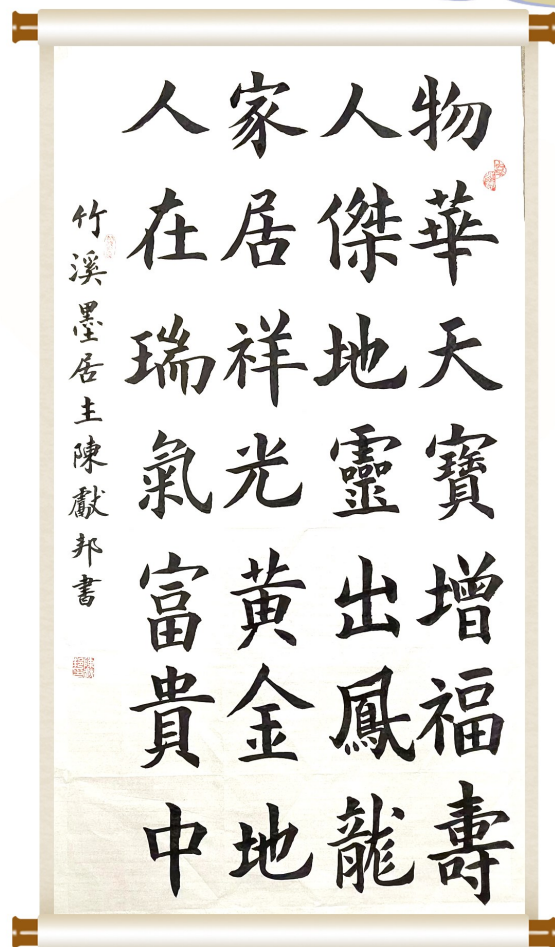 物華天寶增福壽
人傑地靈出鳳龍
家居祥光黄金地
人在瑞氣富貴中
竹溪墨居主陳獻邦書